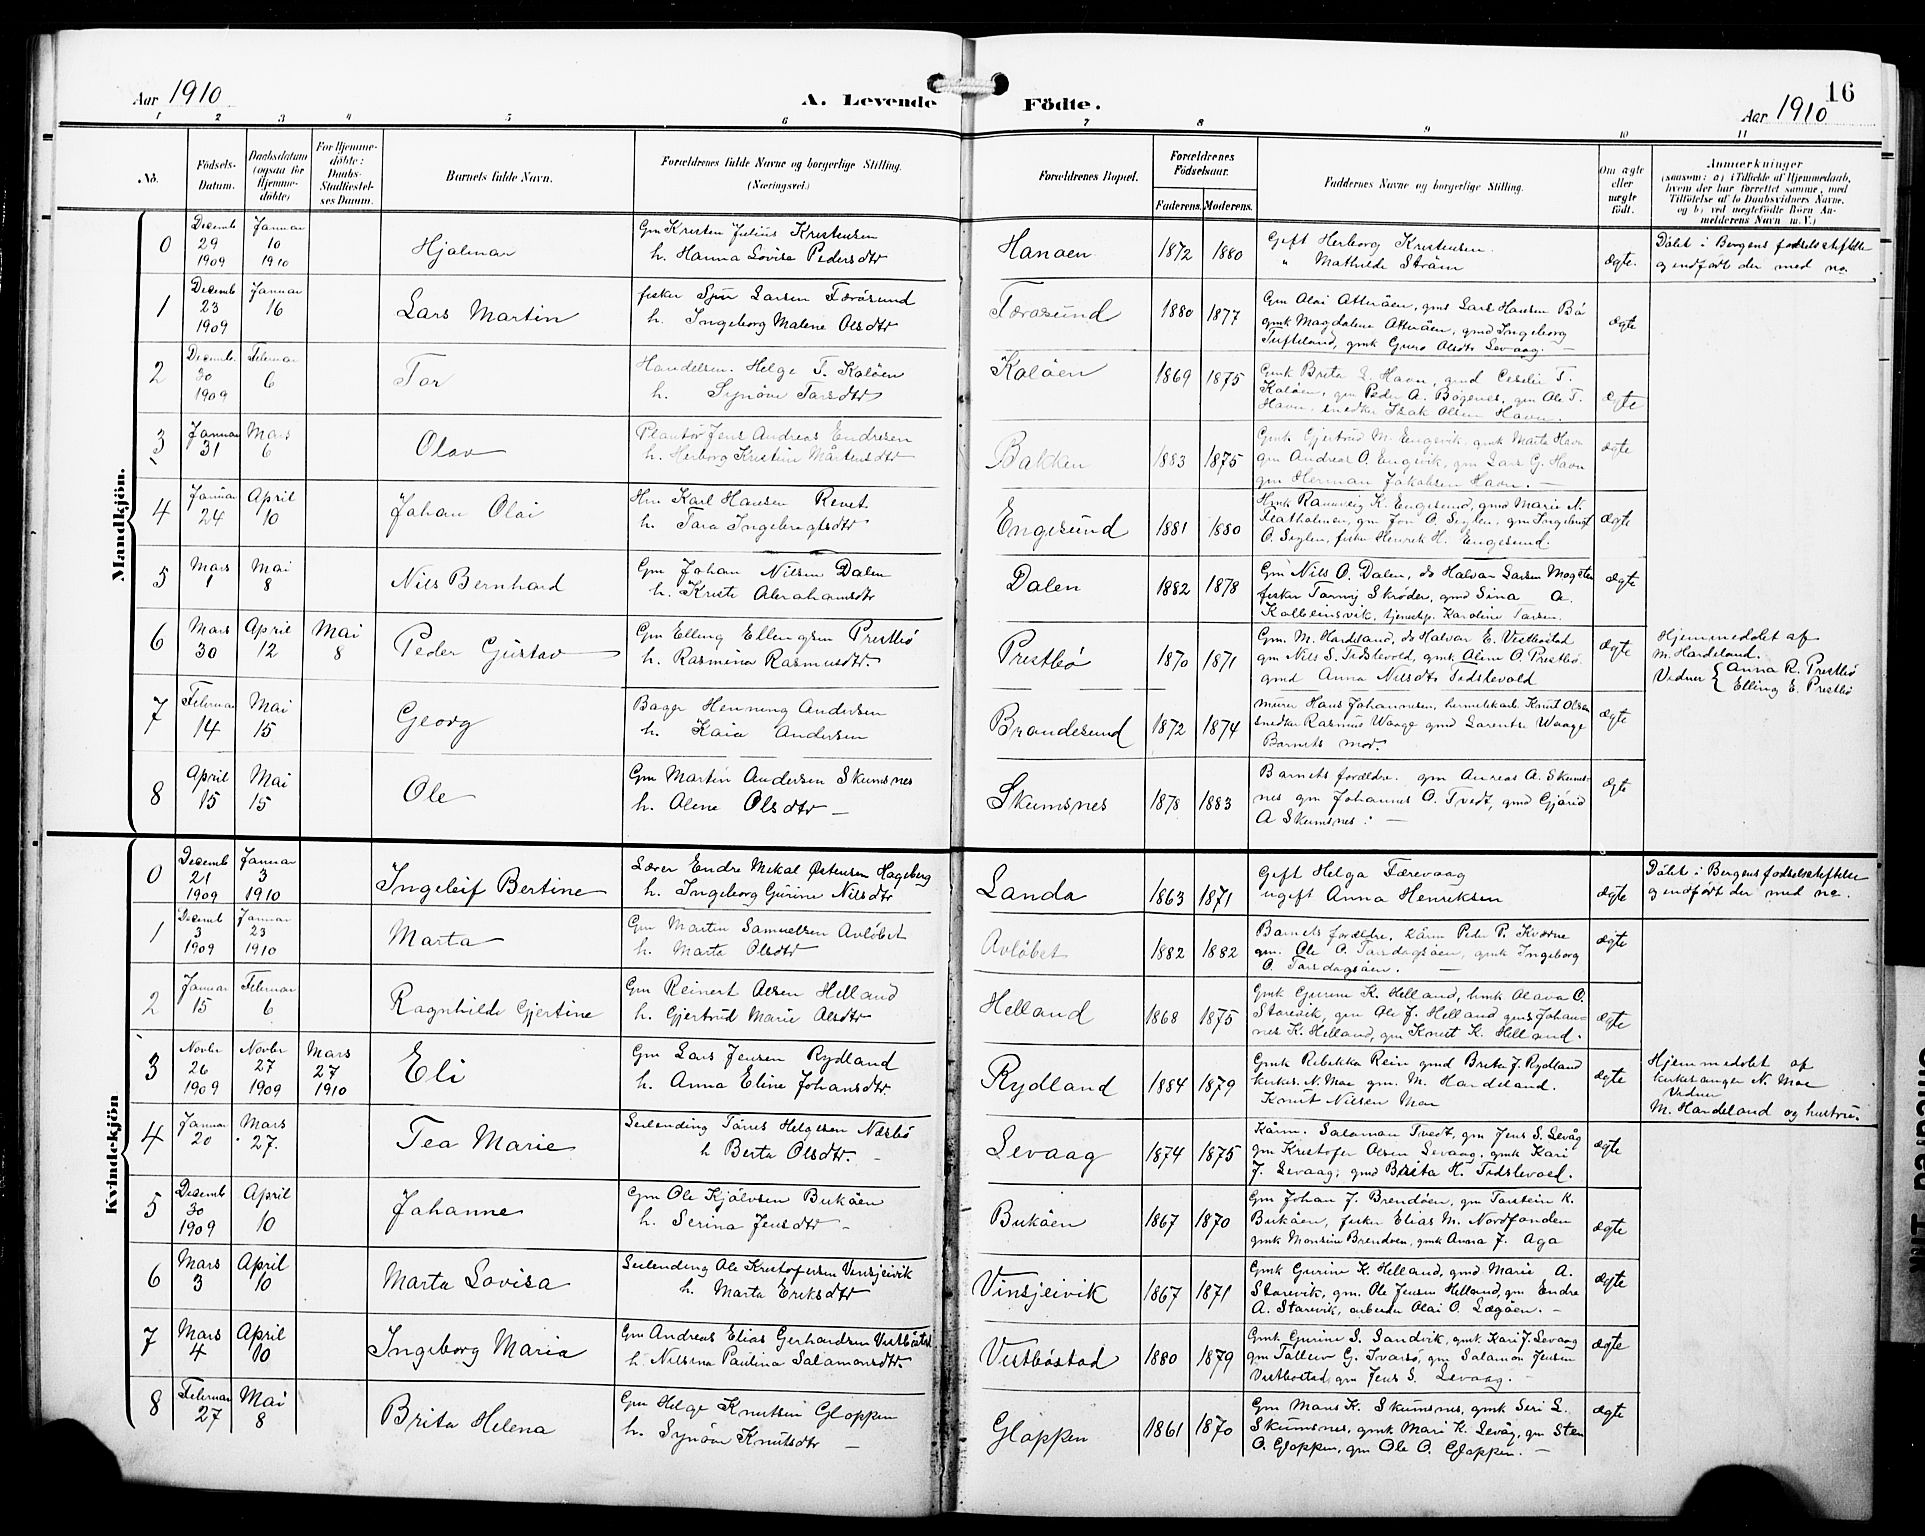 16
Aar 1910
A. Levende Födte.
Aar 1910
1 2 3 4 5 6 7 8 9 10 11
No.
Födsels-Datum.
Daabsdatum (ogsaa for Hjemme-döbte)
For Hjemme-döbte: Daabs-Stadfæstel-ses Datum.
Barnets fulde Navn.
Forældrenes fulde Navne og borgerlige Stilling. (Næringsvei.)
Forældrenes Bopæl.
Forældrenes Födselsaar.
Faderens. Moderens.
Faddernes Navne og borgerlige Stilling.
Om ægte eller uægte födt.
Anmærkninger (saasom: a) i Tilfælde af Hjemmedaab, hvem der har forrettet samme, med Tilföielse af to Daabsvidners Navne, og b) ved uægtefödte Börn An-melderens Navn m. V.)
Mandkjön.
0 Decemb 29 1909 Januar 10 1910 Hjalmar
Gm Kristen Julius Kristensen
h. Hanna Lovise Pedersdtr
Hanøen 1872 1880
Gift Herborg Kristensen.
" Mathilde Ström
ægte.
Döbt i Bergens fødselsstiftelse
og indført der med no
1 Decemb 23 1909 Januar 16 Lars Martin
fisker Sjur Larsen Færøsund
h. Ingeborg Malene Olsdtr
Færøsund 1880 1877
Gm Olai Atteråen, gmd Lars Hansen Bö
gmk Magdalene Atteråen, gmd Ingeborg
Tufteland, gmk Guro Olsdtr Levaag. —
ægte
2 Decemb. 30 1909 Februar 6 Tor
Handelsm. Helge T. Kaløen
h. Synøve Torsdtr
Kaløen 1869 1875
Gmk Brita L. Havn, gmd Cecelie T.
Kaløen, gm Peder A. Bøgenes, gm Ole T.
Havn, snedker Isak Olsen Havn.
ægte
3 Januar 31 Mars 6 Olav
Jens Andreas Endresen
h. Herborg Kristine Mårtensdtr
Bakken 1883 1875
Gmk Gjertrud M. Engevik, gmk Marta Havn
gm Andreas O. Engevik, gm Lars G. Havn
gm Herman Jakobsen Havn. —
ægte
4 Januar 24 April 10 Johan Olai
Hm Karl Hansen Revet
h. Tora Ingebrigtsdtr
Engesund 1881 1880
Hmk Rannveig K. Engesund, gmd Marie N.
Flatholmen, gm Jon O. Siglen, gm Ingebrigt
O. Siglen, fisker Henrik H. Engesund.
ægte
5 Mars 1 Mai 8 Nils Bernhard
Gm Johan Nilsen Dalen
h. Kristi Abrahamsdtr
Dalen 1882 1878
Gm Nils O. Dalen, do Halvar Larsen Mogster
fisker Skrøder, gmd Sina A.
Kolbeinsvik, tjenestep. Karoline Larsen.
ægte
6 Mars 30 April 12 Mai 8 Peder Gustav
Gm Elling Ellingsen Prestbö
h. Rasmina Rasmusdtr.
Prestbö 1870 1871
Gm. M. Hardeland, do Halvar E. Vestbøstad
gm Nils S. Tidslevold, gmk Aline O. Prestbö
gmd Anna Nilsdtr Tidslevold
ægte
Hjemmedøbt af
M. Hardeland.
Vidner { Anna R. Prestbö
Elling E. Prestbö
7 Februar 14 Mai 15 Georg
Bager Henning Andersen
h. Kaia Andersen
Brandesund 1872 1874
murer Hans Johannesen, hermetikarb. Knut Olsen
snedker Rasmus Waage gmd Larentse Waage
Barnets mor.
ægte
8 April 15 Mai 15 Ole
Gm Martin Andersen Skumsnes
h. Olene Olsdtr —
Skumsnes 1878 1883
Barnets forældre. gm Andreas A. Skums-
nes gm Johannes O. Tvedt, gmd Gjörid
A Skumsnes. —
ægte
Kvindekjön
0 Decemb 21 1909 Januar 3 1910 Ingeleif Bertine
Lærer Endre Mikal Østensen Hageberg
h. Ingeborg Gurine Nilsdtr
Landa 1863 1871
Gift Helga Færevaag
ugift Anna Henriksen
ægte
Döbt i Bergens fødselsstiftelse
og indført der med no.
1 Decemb 3 1909 Januar 23 1910 Marta
Gm Martin Samuelsen Avløbet
h. Marta Olsdtr
Avløbet 1882 1882
Barnets forældre, kårm Peder P. Kværne
gm. Ole O. Torsdagsøen, gmk Ingeborg
O. Torsdagsøen. —
ægte
2 Januar 15 Februar 6 Ragnhilde Gjertine
Gm Reinert Olsen Helland
h. Gjertrud Marie Olsdtr
Helland 1868 1875
Gmk Gurine K. Helland, hmk Olava O.
Storevik, gm Ole J. Helland gm Johan-
nes K. Helland, gm Knut K. Helland.
ægte
3 Novbr 26 1909 Novbr 27 1909 Mars 27 1910 Eli
Gm Lars Jensen Rydland
h. Anna Eline Johansdtr.
Rydland 1884 1879
Gmk Rebekka Rein gmd Brita J. Rydland
kirkes. N. Moe gm. M. Hardeland.
Knut Nilsen Moe
ægte
Hjemmedøbt af
kirkesanger N. Moe
Vidner
M. Hardeland og hustru.
4 Januar 20 Mars 27. Tea Marie
Leilending Tönnes Helgesen Næsbö
h Berta Olsdtr. —
Levaag 1874 1875
Kårm. Salamon Tvedt, gm Jens S. Levåg
gm Kristofer Olsen Levaag, gmk Kari
J. Levaag, gmd Brita H. Tidslevold.
ægte
5 Decemb 30 1909 April 10 Johanne
Gm Ole Kjølvsen Bukøen
h. Serina Jensdtr —
Bukøen 1867 1870
Gm Johan J. Brendøen, gm Torstein K.
Bukøen, fisker Elias M. Nordfonden
gmk Monsine Brendøen, gmk Anna J. Aga
ægte
6 Mars 3 April 10 Marta Lovisa
Leilending Ole Kristofersen Vinsjeivik
h. Marta Eriksdtr
Vinsjeivik 1867 1871
Gmk Gurine K. Helland, gmd Marie A.
Storevik, gm. Ole Jensen Helland, gm Endre
A. Storevik, arbeider Olai O. Lægøen. —
ægte
7 Mars 4 April 10 Ingeborg Maria
Gm Andreas Elias Gerhardsen Vestbøstad
h. Nilsina Paulina Salamonsdtr
Vestbøstad 1880 1879
Gmk Gurine S. Sandvik, gmk Kari J. Levaag
gm Tallev G. Ivarsö, gm Salamon Jensen
Vestbostad, gm Jens S. Levaag. —
ægte
8 Februar 27 Mai 8 Brita Helena
Gm Helge Knutsen Gloppen
h. Synøve Knutsdtr —
Gloppen 1861 1870
Gm Mons K. Skumsnes, gmk Seri L.
Skumsnes, gmk Mari K. Levåg, gm Sten
O. Gloppen, gm Ole O. Gloppen. —
ægte